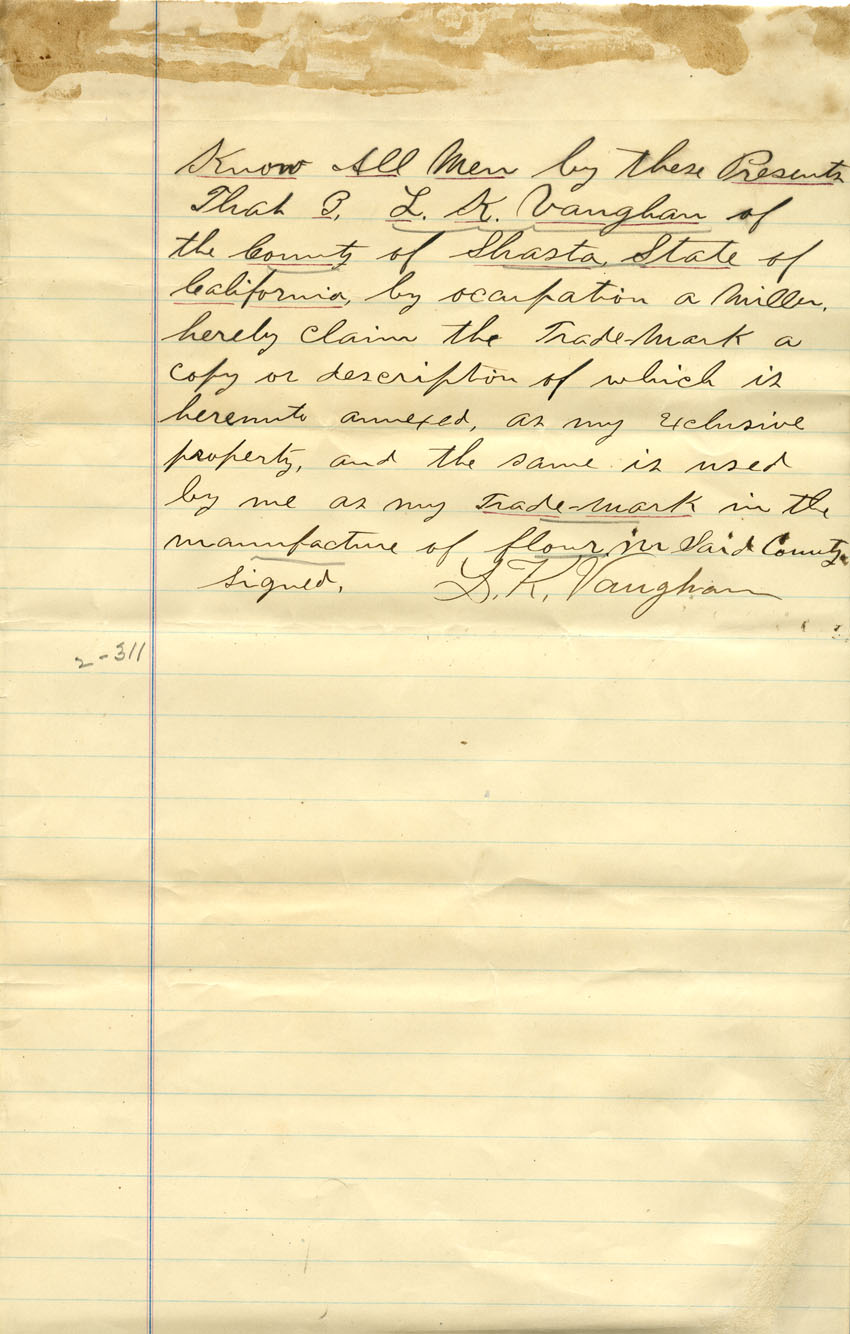 Know All Men by these Presents
That I, L. K. Vaughan of
the County of Shasta, State of
California, by occupation a Miller,
hereby claim the Trade-Mark a
copy or description of which is
hereunto annexed, as my exclusive
property, and the same is used
by me as my Trade-mark in the
manufacture of flour, in Said County.
Signed, L. K. Vaughan
2-311